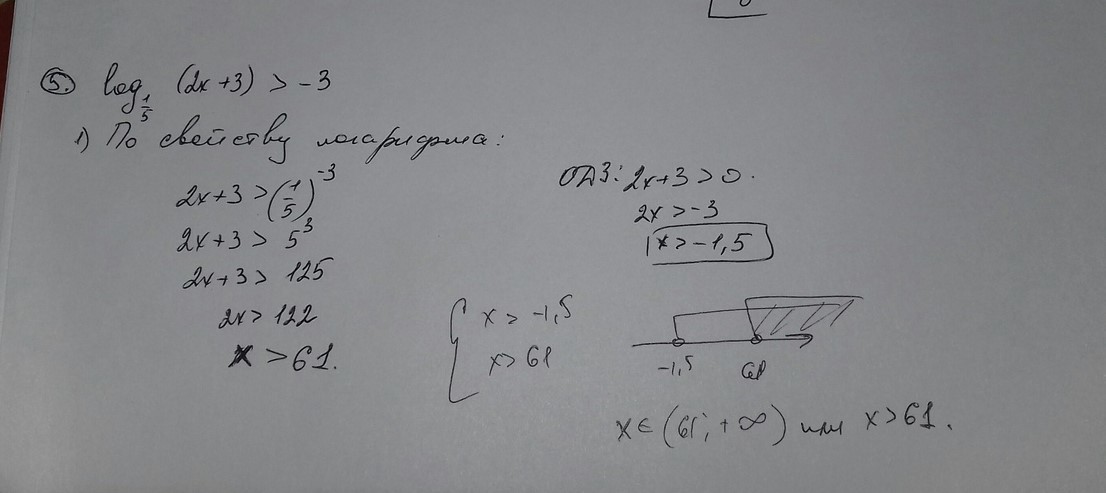 5. log_{1/5} (2x+3) > -3
1) По свойству логарифма:
2x+3 > (1/5)^{-3}
2x+3 > 5^3
2x+3 > 125
2x > 122
x > 61.
ОДЗ: 2x+3 > 0.
2x > -3
x > -1,5
{ x > -1,5
x > 61
-1,5 61
x ∈ (61; +∞) или x > 61.